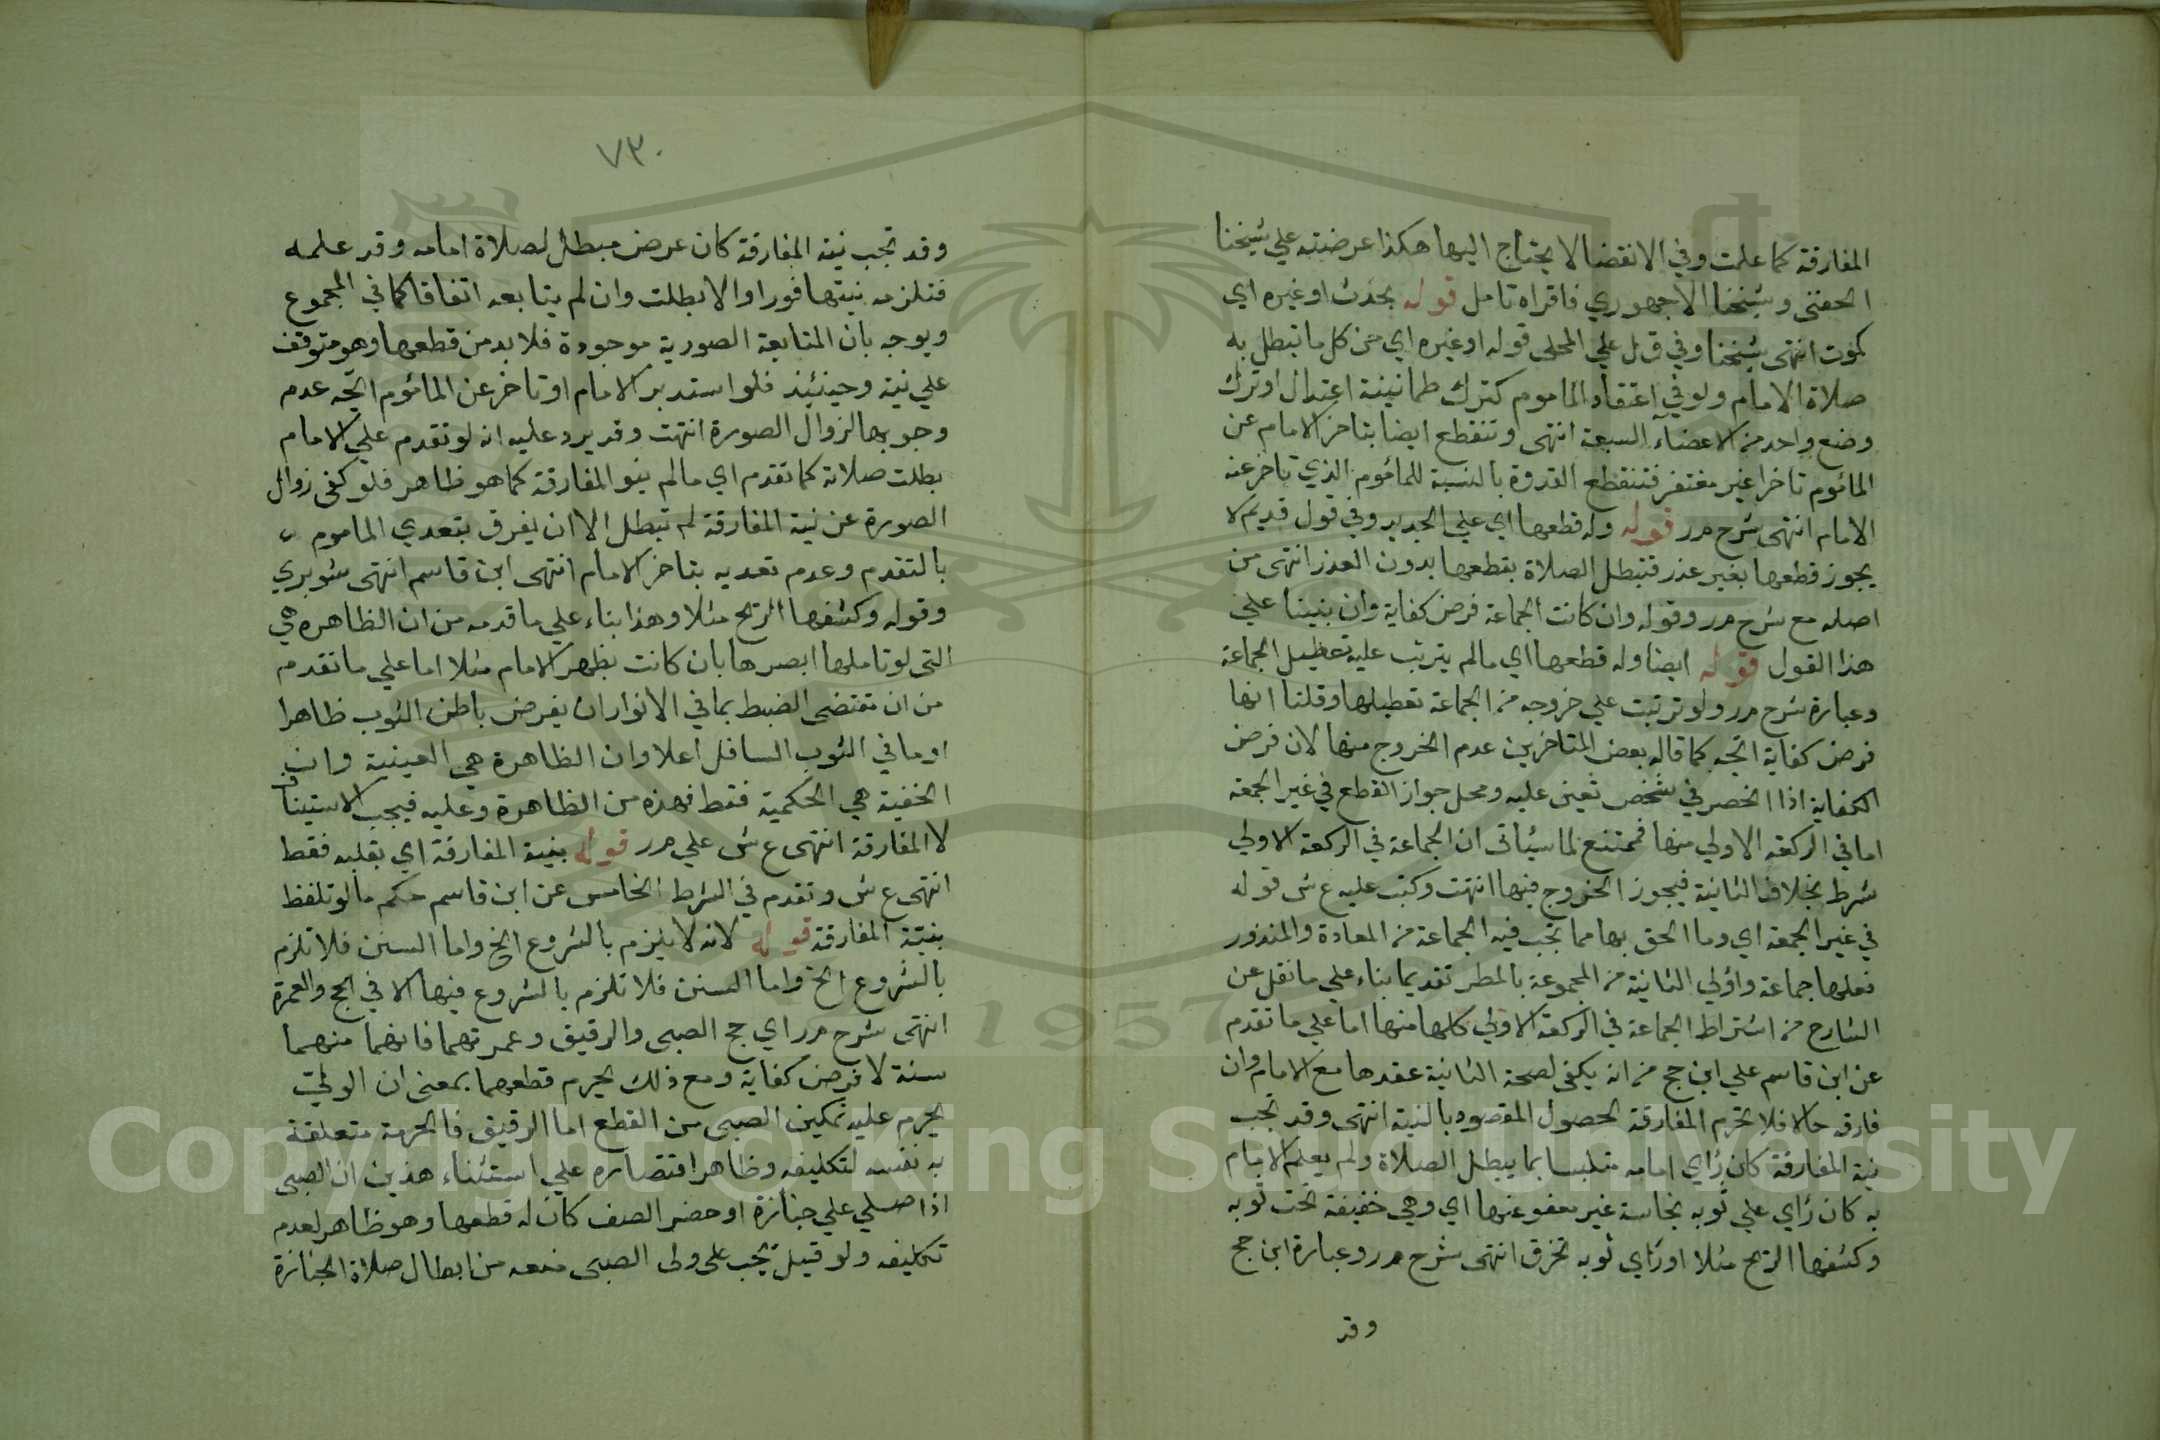 المفارقة كما علمت وفي الانقضا لا يحتاج اليها هكذا عرضته علي شيخنا
الحفنى وشيخنا الاجهوري فاقراه تامل قوله بحدث اوغيره اي
كموت انتهى شيخنا وفي ق ل علي المحلى قوله اوغيره اي من كل ما تبطل به
صلاة الامام ولو في اعتقاد الماموم كترك طمانينة اعتدال اوترك
وضع واحد من الاعضآء السبعة انتهى وتنقطع ايضا بتاخر الامام عن
المائوم تاخرا غير مغتفر فتنقطع القدوة بالنسبة للمائوم الذي تاخر عنه
الامام انتهى شرح م ر قوله وله قطعها اي علي الجديد وفي قول قديم لا
يجوز قطعها بغير عذر فتبطل الصلاة بقطعها بدون العذر انتهى من
اصله مع شرح م ر وقوله وان كانت الجماعة فرض كفاية وان بنينا علي
هذا القول قوله ايضا وله قطعها اي مالم يترتب عليه تعطيل الجماعة
وعبارة شرح م ر ولو ترتبت علي خروجه من الجماعة تعطيلها وقلنا انها
فرض كفاية اتجه كما قاله بعض المتاخرين عدم الخروج منها لان فرض
الكفاية اذا انحصر في شخص تعين عليه ومحل جواز القطع في غير الجمعة
اما في الركعة الاولي منها فممتنع لما سيئاتى ان الجماعة في الركعة الاولي
شرط بخلاف الثانية فيجوز الخروج فيها انتهت وكتب عليه ع ش قوله
في غير الجمعة اي وما الحق بها مما تجب فيه الجماعة من المعادة والمنذور
فعلها جماعة واؤلي الثانية من المجموعة بالمطر تقديما بناء علي ما نقل عن
الشارح من اشتراط الجماعة في الركعة الاولي كلها منها اما علي ما تقدم
عن ابن قاسم علي ابن حج من انه يكفي لصحة الثانية عقدها مع الامام وان
فارقه حالا فلا تحرم المفارقة لحصول المقصود بالنية انتهى وقد تجب
نية المفارقة كان رٔاي امامه متلبسا بما يبطل الصلاة ولم يعلم الامام
به كان رٔاي علي ثوبه نجاسة غير معفو عنها اي وهي خفيفة تحت ثوبه
وكشفها الريح مثلا اورٔاي ثوبه تخرق انتهى شرح م ر وعبارة ابن حج
وقد
٧٣٠
وقد تجب نية المفارقة كان عرض مبطل لصلاة امامه وقد علمه
فتلزمه نيتها فورا والا بطلت وان لم يتابعه اتفاقا كما في المجموع
ويوجه بان المتابعة الصورية موجودة فلا بد من قطعها وهو متوقف
علي نية وحينئيذ فلو استدبر الامام اوتاخر عن المائموم اتجه عدم
وجوبها لزوال الصورة انتهت وقد يرد عليه انه لوتقدم علي الامام
بطلت صلاته كما تقدم اي مالم ينو المفارقة كما هو ظاهر فلو كفى زوال
الصورة عن نية المفارقة لم تبطل الا ان يفرق بتعدي الماموم
بالتقدم وعدم تعديه بتاخر الامام انتهى ابن قاسم انتهى شوبري
وقوله وكشفها الريح مثلا وهذا بناء علي ما قدمه من ان الظاهره هي
التى لوتاملها ابصرها بان كانت بظهر الامام مثلا اما علي ما تقدم
من ان مقتضى الضبط بما في الانوار ان يفرض باطن الثوب ظاهرا
اوما في الثوب السافل اعلا وان الظاهرة هي العينية وان
الخفية هي الحكمية فقط فهذه من الظاهرة وعليه فيجب الاستيناف
لا المفارقة انتهى ع ش علي م ر قوله بنية المفارقة اي بقلبه فقط
انتهى ع ش وتقدم في الشرط الخامس عن ابن قاسم حكم ما لو تلفظ
بنيتة المفارقة قوله لانه لا يلزم بالشروع الخ واما السنن فلا تلزم
بالشروع الخ واما السنن فلا تلزم بالشروع فيها الا في الحج والعمرة
انتهى شرح م ر اي حج الصبى والرقيق وعمرتهما فانهما منهما
سنة لا فرض كفاية ومع ذلك يحرم قطعهما بمعنى ان الولي
يحرم عليه تمكين الصبى من القطع اما الرقيق فالحرمة متعلقة
به نفسه لتكليفه وظاهر اقتصاره علي استثناء هذين ان الصبى
اذا صلي علي جنازة اوحضر الصف كان له قطعها وهو ظاهر لعدم
تكليفه ولو قيل يجب على ولى الصبى منعه من ابطال صلاة الجنازة
Copyright © King Saud University
1957